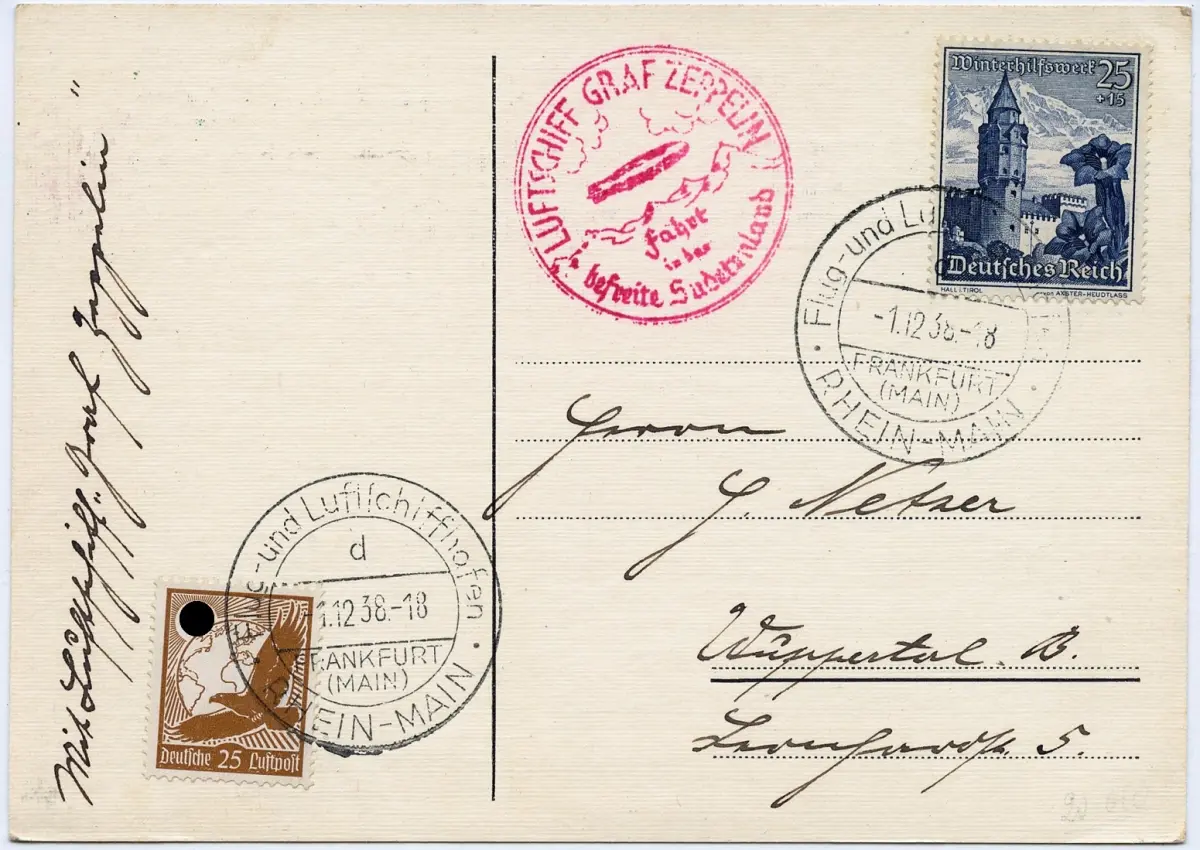 Mit Luftschiff „Graf Zeppelin"
LUFTSCHIFF GRAF ZEPPELIN
Fahrt
in das
befreite Sudetenland
Winterhilfswerk 25
+15
Deutsches Reich
HALL & TIROL
VON AXSTER-HEUDTLASS
Flug-und Lu
-1.12 38.-18
FRANKFURT
(MAIN)
RHEIN-MAIN
Herrn
Netzer
Wuppertal. B.
5.
und Luftschiffhafen
d
-1.12 38.-18
FRANKFURT
(MAIN)
RHEIN-MAIN
Deutsche 25 Luftpost